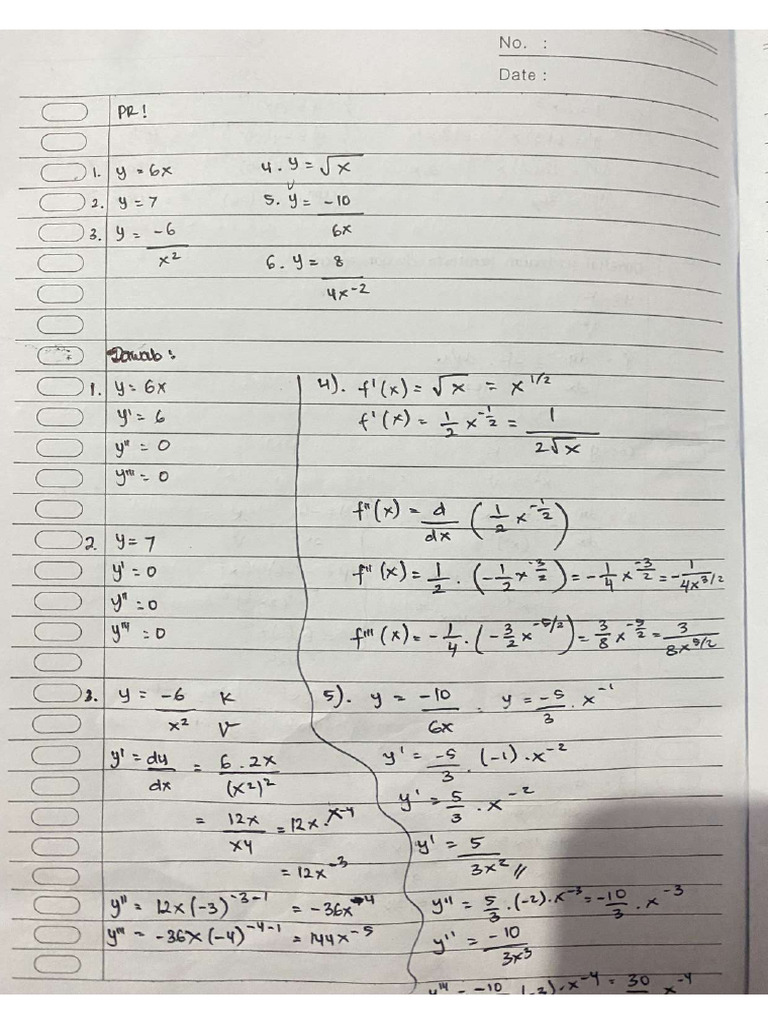 No. :
Date :
PR!
1. y = 6x
2. y = 7
3. y = -6/x²
4. y = √x
5. y = -10/6x
6. y = 8/4x⁻²
Jawab :
1. y = 6x
y' = 6
y'' = 0
y''' = 0
2. y = 7
y' = 0
y'' = 0
y''' = 0
3. y = -6/x² K/V
y' = dy/dx = 6 . 2x/(x²)²
= 12x/x4 = 12x . x⁻⁴
= 12x⁻³
y'' = 12x(-3)⁻³⁻¹ = -36x⁻⁴
y''' = -36x(-4)⁻⁴⁻¹ = 144x⁻⁵
4). f'(x) = √x = x^1/2
f'(x) = 1/2 x^-1/2 = 1/2√x
f''(x) = d/dx (1/2 x^-1/2)
f''(x) = 1/2 . (-1/2 x^-3/2) = -1/4 x^-3/2 = -1/4x^3/2
f'''(x) = -1/4 . (-3/2 x^-5/2) = 3/8 x^-5/2 = 3/8x^5/2
5). y = -10/6x . y = -5/3 . x⁻¹
y' = -5/3 . (-1) . x⁻²
y' = 5/3 . x⁻²
y' = 5/3x² //
y'' = 5/3 . (-2) . x⁻³ = -10/3 . x⁻³
y'' = -10/3x³
y''' = -10 (-3) . x⁻⁴ = 30 x⁻⁴